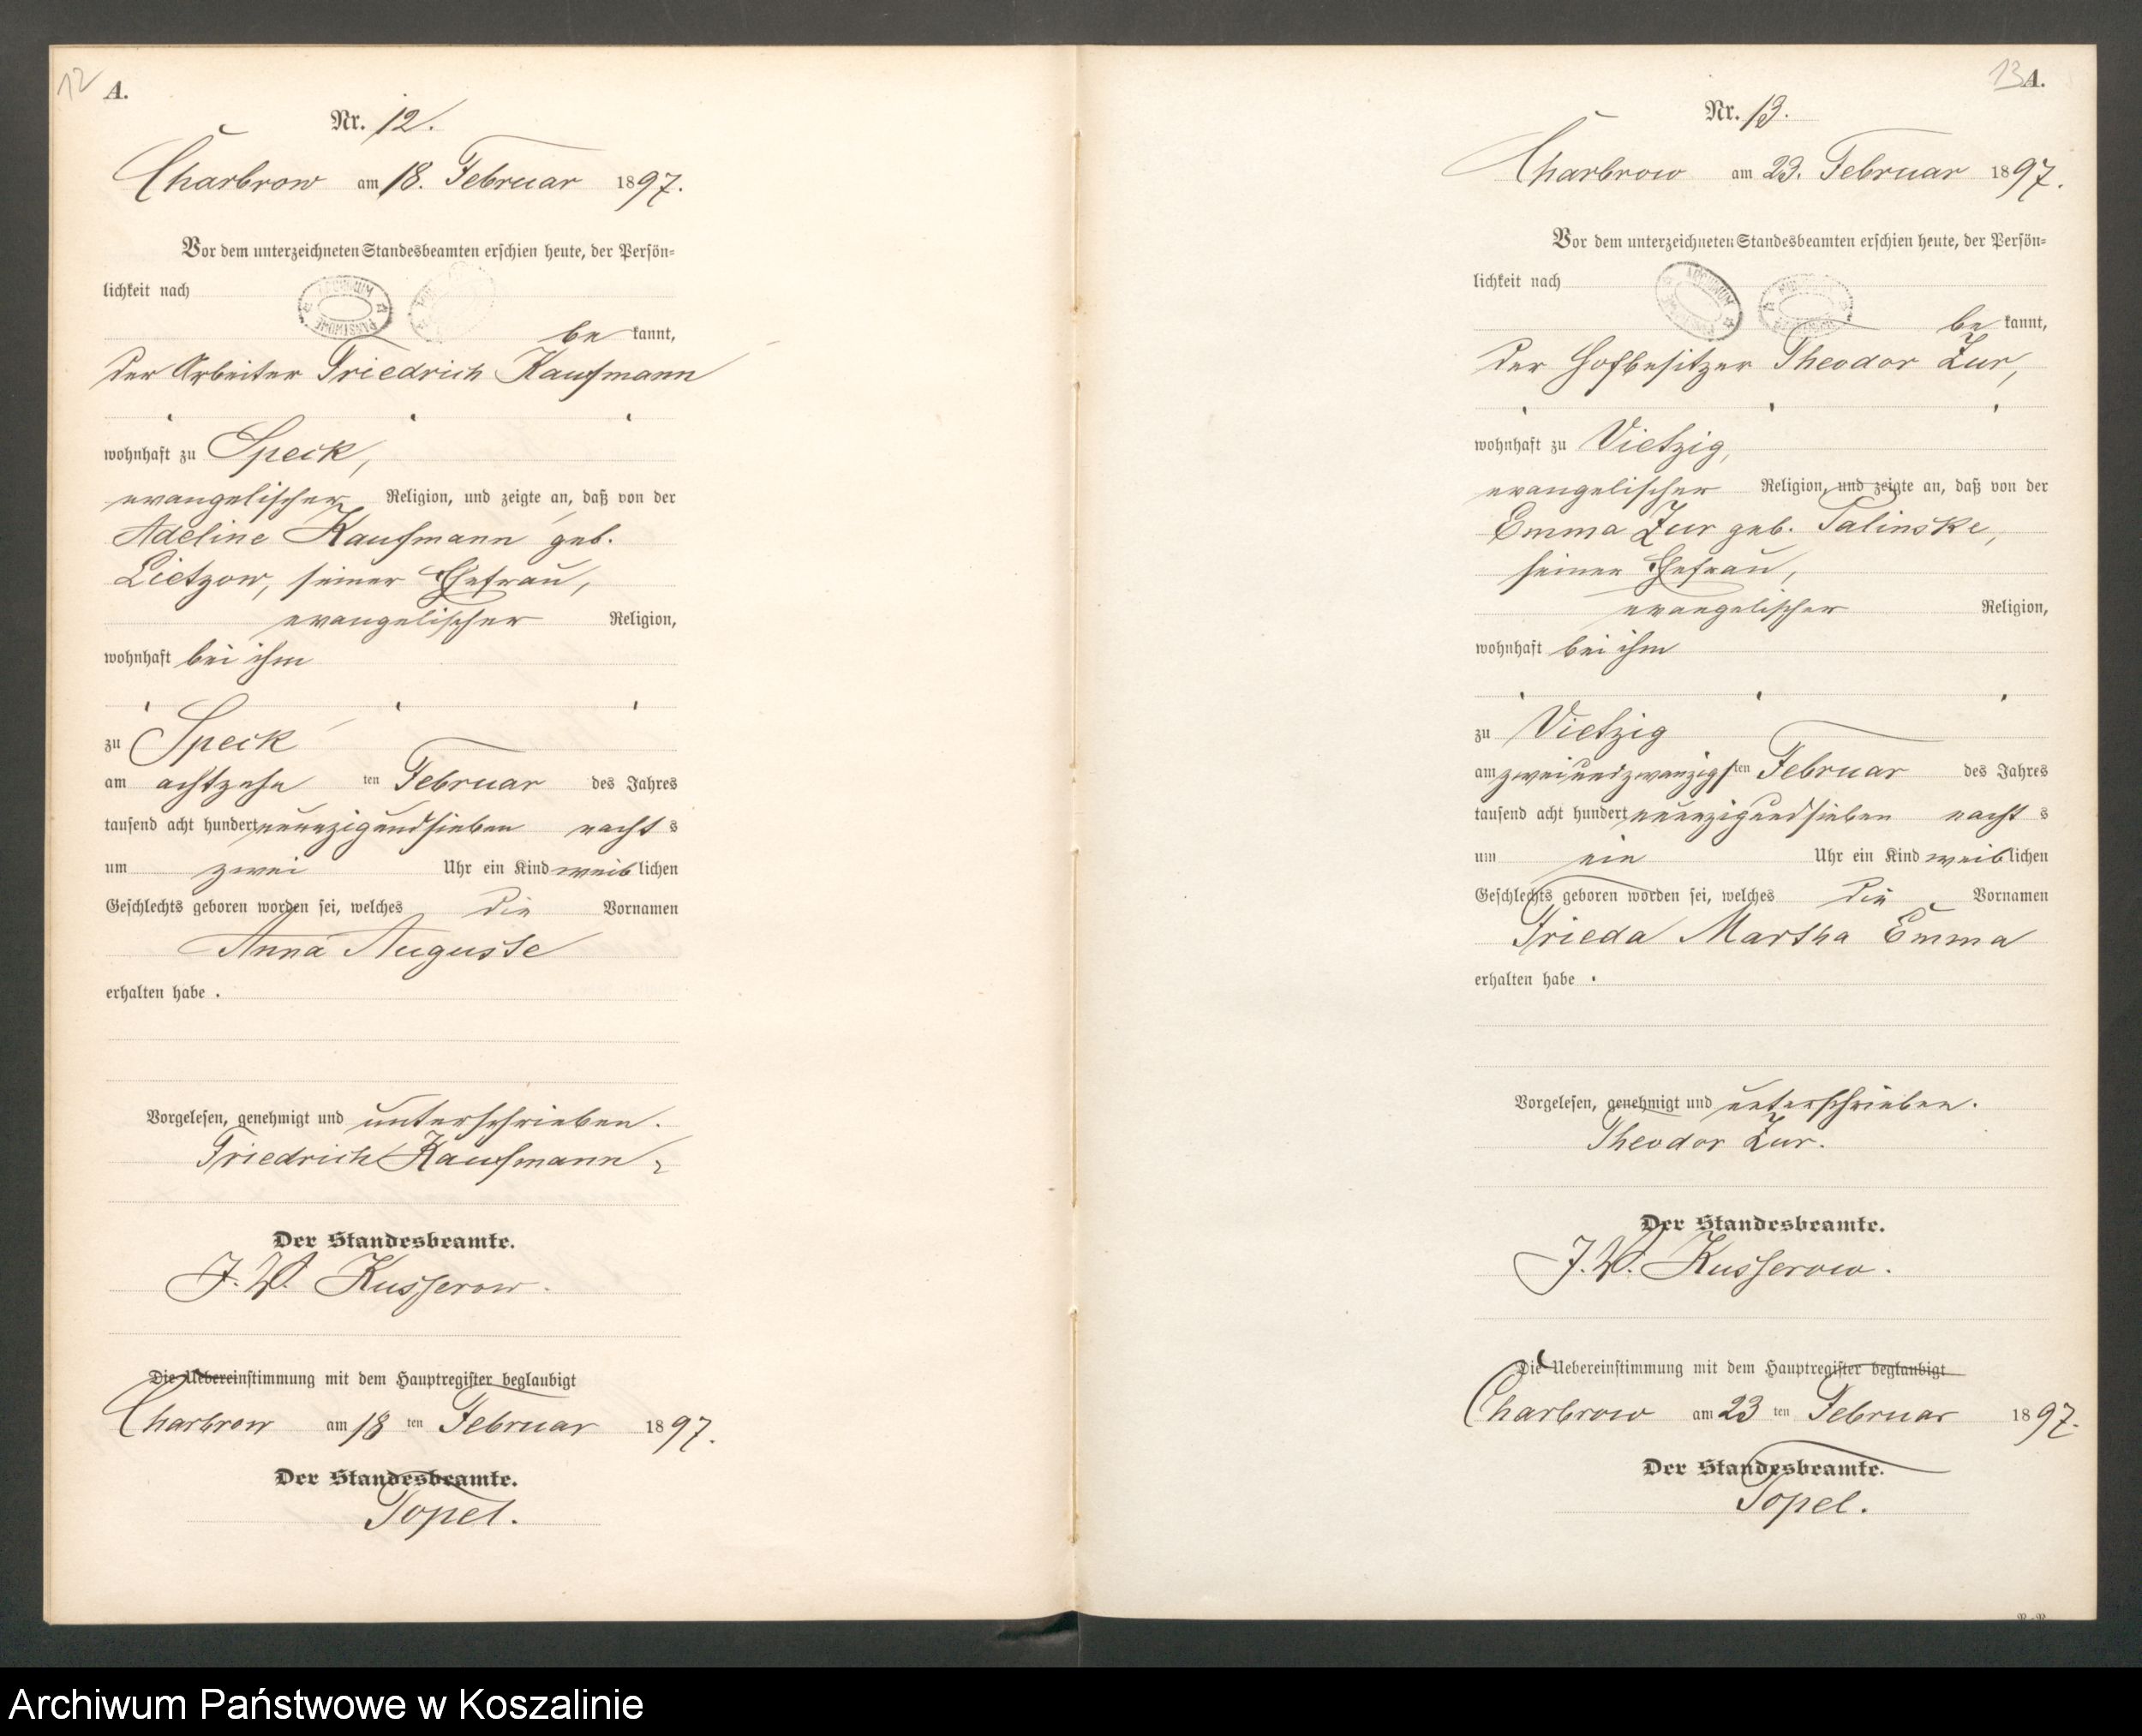 12
A.
Nr. 12.
Charbrow am 18. Februar 1897.
Vor dem unterzeichneten Standesbeamten erschien heute, der Persön-
lichkeit nach
be kannt,
der Arbeiter Friedrich Kaufmann
wohnhaft zu Speck,
evangelischer Religion, und zeigte an, daß von der
Adeline Kaufmann geb.
Lietzow, seiner Ehefrau,
evangelischer Religion,
wohnhaft bei ihm
zu Speck
am achtzehn ten Februar des Jahres
tausend acht hundert neunzigundsieben nacht s
um zwei Uhr ein Kind weib lichen
Geschlechts geboren worden sei, welches die Vornamen
Anna Auguste
erhalten habe .
Vorgelesen, genehmigt und unterschrieben.
Friedrich Kaufmann
Der Standesbeamte.
J. V. Kusserow.
Die Uebereinstimmung mit dem Hauptregister beglaubigt
Charbrow am 18 ten Februar 1897.
Der Standesbeamte.
Topel.
13
A.
Nr. 13.
Charbrow am 23. Februar 1897.
Vor dem unterzeichneten Standesbeamten erschien heute, der Persön-
lichkeit nach
be kannt,
der Hofbesitzer Theodor Zur,
wohnhaft zu Vietzig,
evangelischer Religion, und zeigte an, daß von der
Emma Zur geb. Talinske,
seiner Ehefrau,
evangelischer Religion,
wohnhaft bei ihm
zu Vietzig
am zweiundzwanzigs ten Februar des Jahres
tausend acht hundert neunzigundsieben nacht s
um ein Uhr ein Kind weib lichen
Geschlechts geboren worden sei, welches die Vornamen
Frieda Martha Emma
erhalten habe .
Vorgelesen, genehmigt und unterschrieben.
Theodor Zur.
Der Standesbeamte.
J. V. Kusserow.
Die Uebereinstimmung mit dem Hauptregister beglaubigt
Charbrow am 23 ten Februar 1897.
Der Standesbeamte.
Topel.
Archiwum Państwowe w Koszalinie